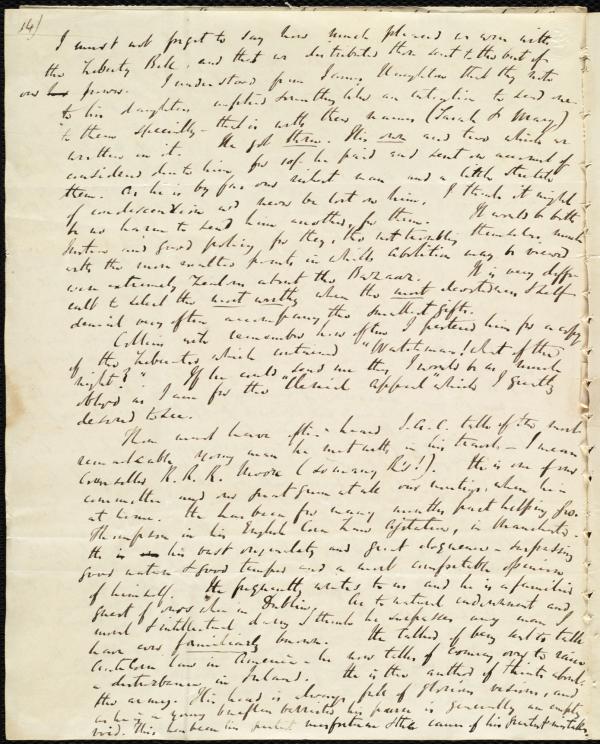 14)
I must not forget to say how much pleased we were with
the Liberty Bell, and that we distributed them sent to the best of
our power. I understood from James Haughton that they note
to his daughters implied something like an intention to send me
to them specially - that is with their names (Sarah & Mary)
written in it. He got three. His own and two which we
considered due to him, for he paid and sent on account of
them. As he is by far our richest man and a little
of condescension will never be lost on him, I think it might
be no harm to send him another, for them. It would be both
justice and good policy, for they, tho' not troubling themselves much
with the more exalted points in which abolition may be viewed
were extremely zealous about the Bazaar. It is very diffi-
cult to label the most worthy when the most devotedness & self-
denial very often accompany the smallest gifts.
Collins will remember how often I pestered him for a copy
of the Liberator which contained "Watchman! What of the
night?" If he could send me this, I would be as much
obliged as I am for the "Clerical Appeal" which I greatly
desired to see.
Thou must have often heard J.A.C. talk of the most
remarkable young man he met with in his travels - I mean
Counsellor R. R. R. Moore (so many R's!). He is one of our
committee and our great gun at all our meetings, when he is
at home. He has been for many months past helping Geo.
Thompson in his English Corn Law Agitation, in Manchester.
He is his vast and great eloquence - surpassing
good nature & good temper and a most comfortable opinion
of himself. He frequently writes to us and he is a familiar
guest of ours when in Dublin. As to natural endowment and
moral & intellectual daring I think he surpasses any man I
have ever familiarly known. He talked of being sent to talk
Anti Corn law in America - he now talks of coming over to raise
a disturbance in Ireland. He is the author of Hints about
the army. His head is always full of glorious visions, and
as being a young briefless barrister his purse is generally an empty
void. This has been his greatest misfortune & the cause of his greatest mistakes.